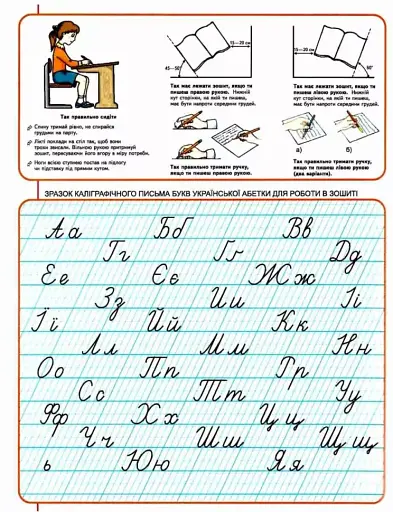 Так правильно сидіти
Спину тримай рівно, не спирайся
грудьми на парту.
Лікті поклади на стіл так, щоб вони
трохи звисали. Вільною рукою притримуй
зошит, пересуваючи його вгору в міру потреби.
Ноги всією ступнею постав на підлогу
чи підставку під прямим кутом.
15—20 см
45—50°
Так має лежати зошит, якщо ти
пишеш правою рукою. Нижній
кут сторінки, на якій ти пишеш,
має бути напроти середини грудей.
Так правильно тримати ручку,
якщо ти пишеш правою рукою.
15—20 см
60°
Так має лежати зошит, якщо ти
пишеш лівою рукою. Нижній
кут сторінки, на якій ти пишеш,
має бути напроти середини грудей.
а) б)
Так правильно тримати ручку,
якщо ти пишеш лівою рукою
(два варіанти).
ЗРАЗОК КАЛІГРАФІЧНОГО ПИСЬМА БУКВ УКРАЇНСЬКОЇ АБЕТКИ ДЛЯ РОБОТИ В ЗОШИТІ
Аа Бб Вв
Гг Ґґ Дд
Ее Єє Жж
Зз Ии Іі
Її Йй Кк
Лл Мм Нн
Оо Пп Рр
Сс Тт Уу
Фф Хх Цц
Чч Шш Щщ
ь Юю Яя